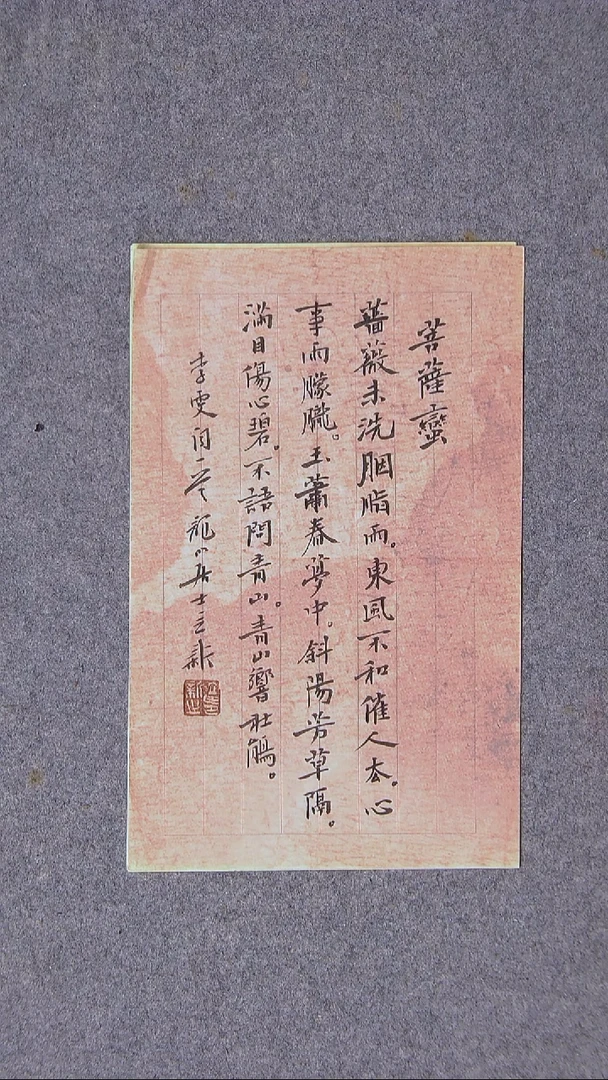 菩薩蠻
薔薇未洗胭脂雨。東風不和催人去。心
事兩朦朧。玉蕭春夢中。斜陽芳草隔。
滿目傷心碧。不語問青山。青山響杜鵑。
李雯詞一首 龍山居士立新